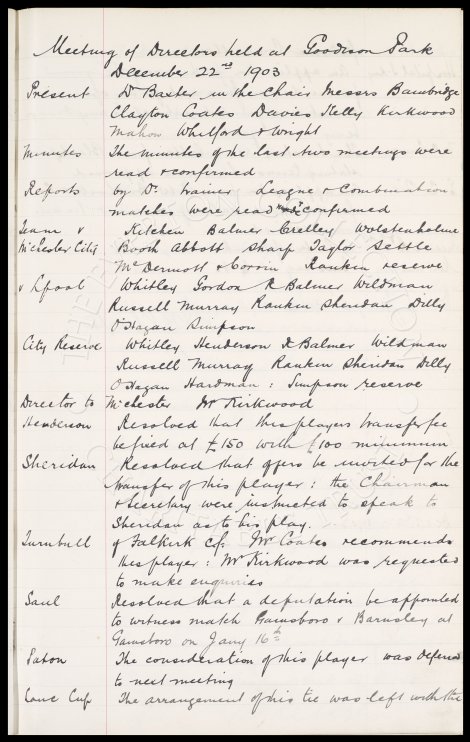 Meeting of Directors held at Goodison Park
December 22nd 1903
Present Dr Baxter in the Chair Messrs Bainbridge
Clayton Coates Davies Kelly Kirkwood
Mahon Whitford & Wright
Minutes The minutes of the last two meetings were
read & confirmed
Reports by Dr. Trainer League & Combination
matches were read & confirmed
Team v Kitchen Balmer Crelley Wolstenholme
M'chester City Booth Abbott Sharp Taylor Settle
McDermott & Corrin Rankin reserve
v L'pool Whitley Gordon R Balmer Wildman
Russell Murray Rankin Sheridan Dilly
O'Hagan Simpson
City Reserve Whitley Henderson R Balmer Wildman
Russell Murray Rankin Sheridan Dilly
O'Hagan Hardman : Simpson reserve
Director to M'chester Mr Kirkwood
Henderson Resolved that this players transfer fee
be fixed at £150 with £100 minimum
Sheridan Resolved that offers be invited for the
transfer of this player : the Chairman
& Secretary were instructed to speak to
Sheridan as to his play.
Turnbull of Falkirk C.f. Mr Coates recommends
this player : Mr Kirkwood was requested
to make enquiries
Saul Resolved that a deputation be appointed
to witness match Gainsboro v Barnsley at
Gainsboro on Jany 16th
Paton The consideration of this player was deferred
to next meeting
Lanc Cup The arrangement of this tie was left with the